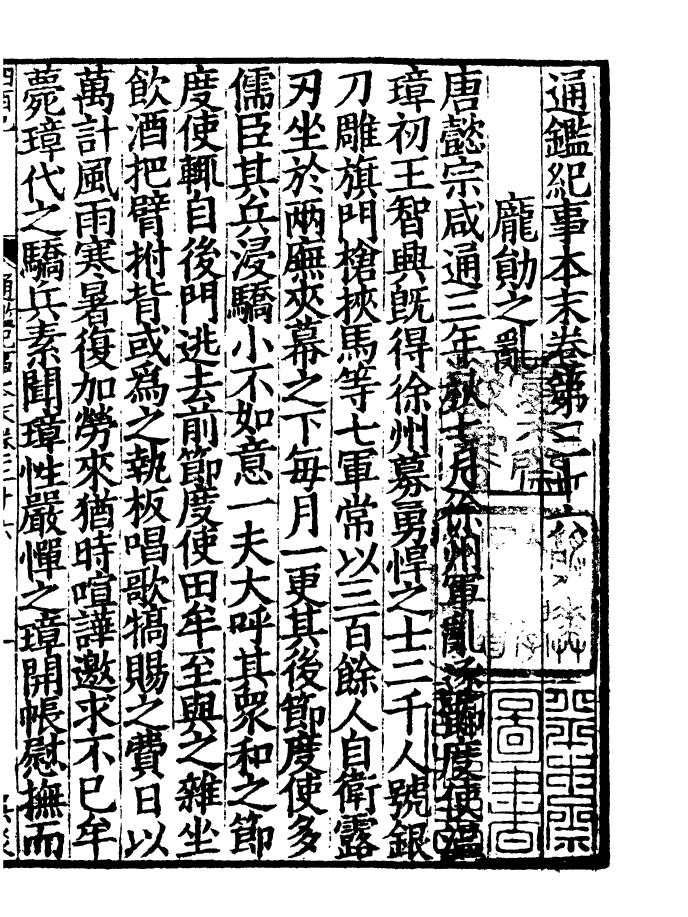 通鑑紀事本末卷第三十六
龐勛之亂
唐懿宗咸通三年秋七月徐州軍亂逐節度使溫
璋初王智興既得徐州募勇悍之士二千人號銀
刀雕旗門槍挾馬等七軍常以三百餘人自衛露
刃坐於兩廡夾幕之下每月一更其後節度使多
儒臣其兵浸驕小不如意一夫大呼其衆和之節
度使輒自後門逃去前節度使田牟至與之雜坐
飲酒把臂拊背或爲之執板唱歌犒賜之費日以
萬計風雨寒暑復加勞來猶時喧譁邀求不已牟
薨璋代之驕兵素聞璋性嚴憚之璋開帳慰撫而